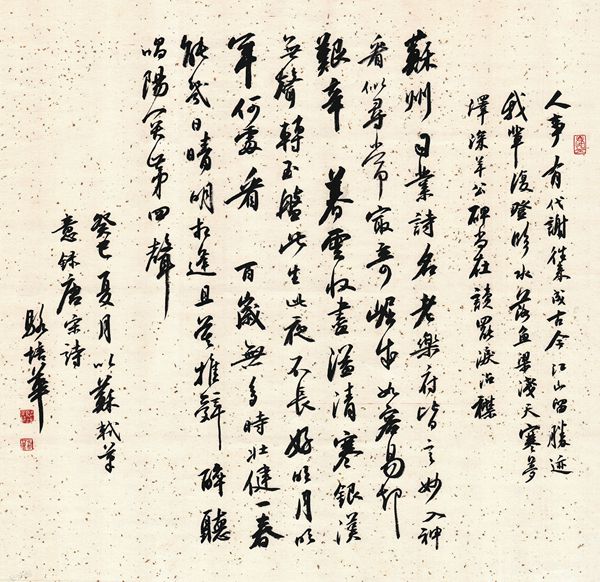 人事有代謝往來成古今江山留勝迹
我輩復登臨水落魚梁淺天寒夢
澤深羊公碑尚在讀罷淚沾襟
蘇州司業詩名老樂府皆言妙入神
看似尋常最奇崛成如容易却
艱辛 暮雲收盡溢清寒銀漢
無聲轉玉盤此生此夜不長好明月明
年何處看 百歲無多時壯健一春
能幾日晴明相逢且莫推辭醉聽
唱陽關第四聲
癸巳夏月以蘇軾筆
意録唐宋詩
駱培華